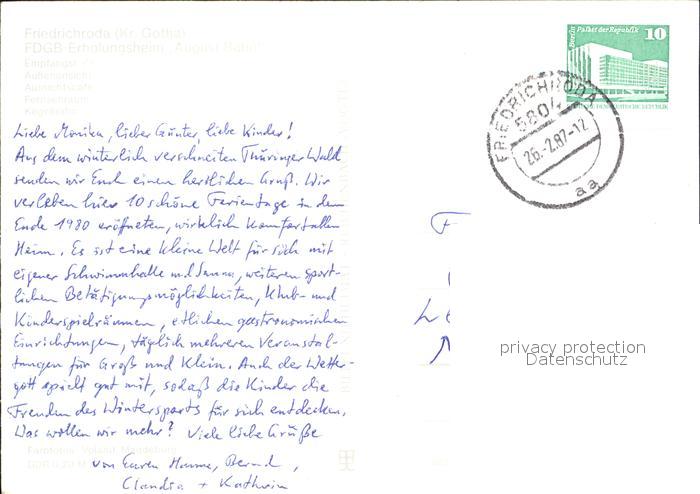 Friedrichroda (Kr. Gotha)
FDGB-Erholungsheim „August Bebel"
Außenansicht
Fernsehraum
Liebe Monika, lieber Günter, liebe Kinder!
Aus dem winterlich verschneiten Thüringer Wald
senden wir Euch einen herzlichen Gruß. Wir
verleben hier 10 schöne Ferientage in dem
Ende 1980 eröffneten, wirklich komfortablen
Heim. Es ist eine kleine Welt für sich mit
eigener Schwimmhalle und Sauna, weiteren sport-
lichen Betätigungsmöglichkeiten, Klub- und
Kinderspielräumen, etlichen gastronomischen
Einrichtungen, täglich mehreren Veranstal-
tungen für Groß und Klein. Auch der Wetter-
gott spielt gut mit, sodaß die Kinder die
Freuden des Wintersports für sich entdecken.
Was wollen wir mehr? Viele liebe Grüße
von Euren Hanne, Bernd,
Claudia + Kathrin
Berlin Palast der Republik
10
FRIEDRICHRODA
5804
26.-2.87-12
aa
privacy protection
Datenschutz